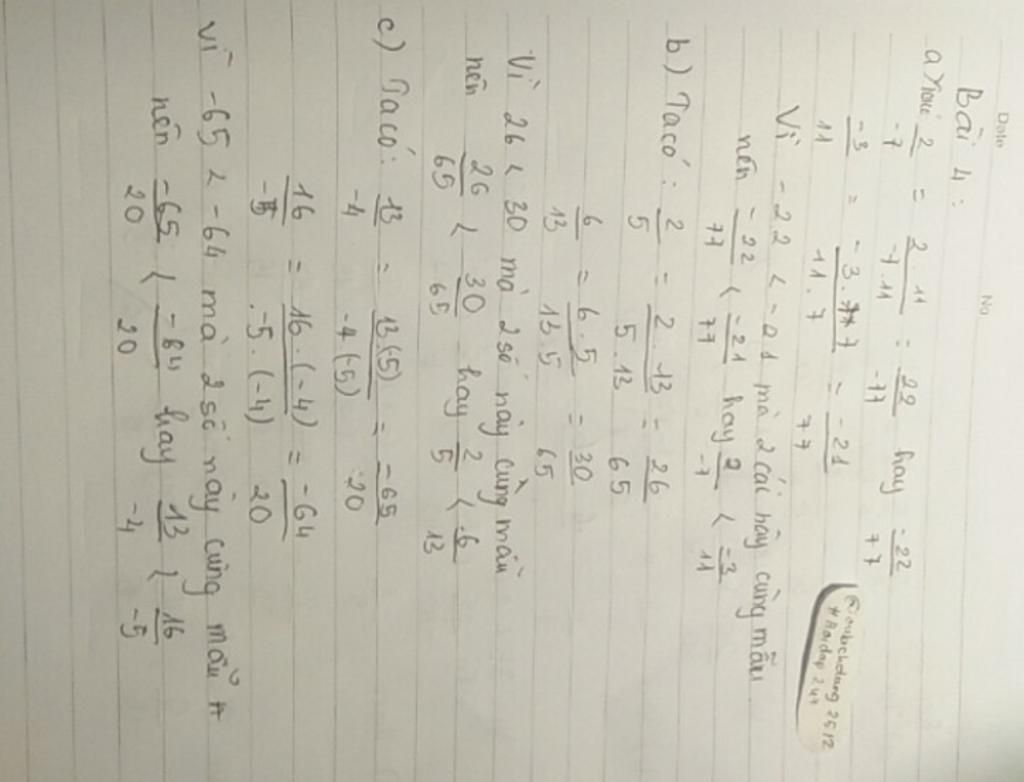 Date No
Bài 4:
a) 2/-7 = 2.11/-7.11 = 22/-77 hay -22/77
-3/11 = -3.7/11.7 = -21/77
Vì -22 < -21 mà 2 cái này cùng mẫu
nên -22/77 < -21/77 hay 2/-7 < -3/11
b) Ta có: 2/5 = 2.13/5.13 = 26/65
6/13 = 6.5/13.5 = 30/65
Vì 26 < 30 mà 2 số này cùng mẫu
nên 26/65 < 30/65 hay 2/5 < 6/13
c) Ta có: 13/-4 = 13(-5)/-4(-5) = -65/20
16/-5 = 16.(-4)/-5.(-4) = -64/20
Vì -65 < -64 mà 2 số này cùng mẫu +
nên -65/20 < -64/20 hay 13/-4 < 16/-5